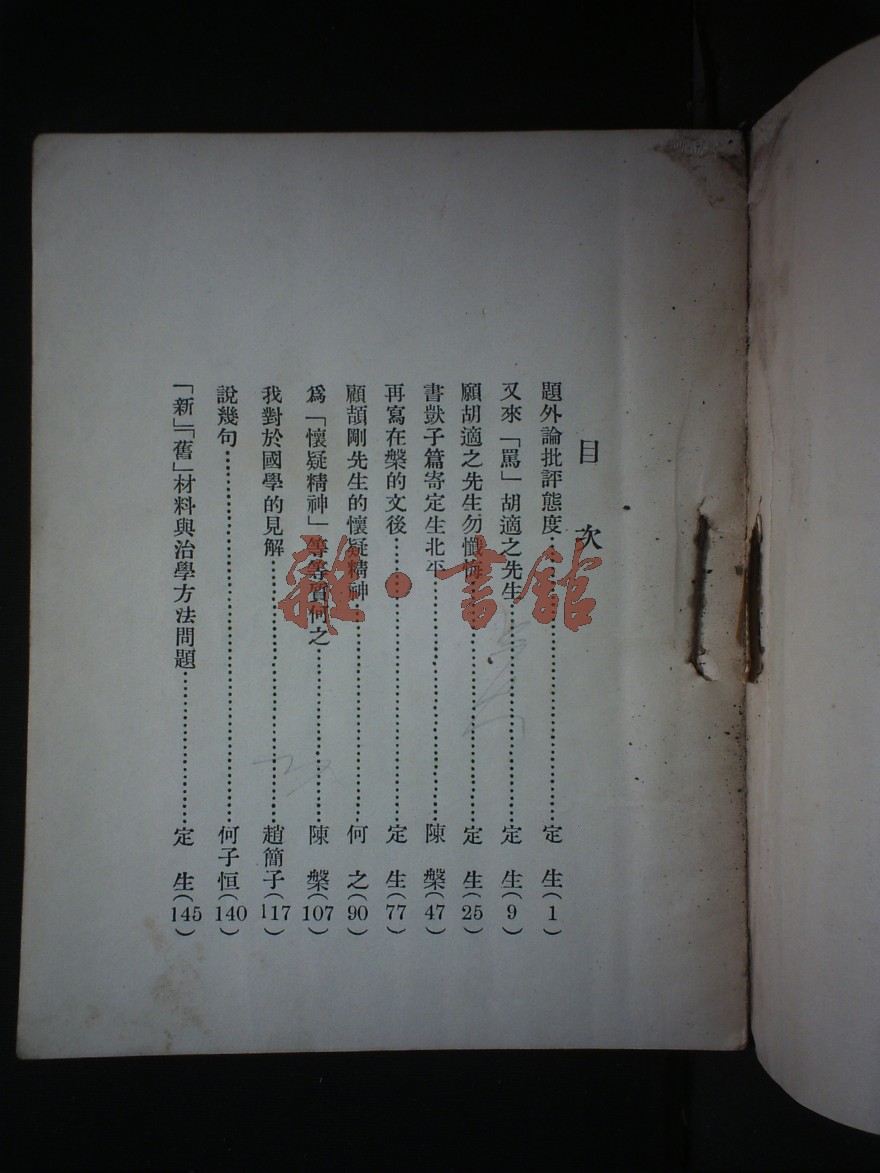 目次
題外論批評態度……定　生（1）
又來「罵」胡適之先生……定　生（9）
願胡適之先生勿懺悔……定　生（25）
書獃子篇寄定生北平……陳　槃（47）
再寫在槃的文後……定　生（77）
顧頡剛先生的懷疑精神……何　之（90）
爲「懷疑精神」等等質何之……陳　槃（107）
我對於國學的見解……趙簡子（117）
說幾句……何子恒（140）
「新」「舊」材料與治學方法問題……定　生（145）
雜·書館